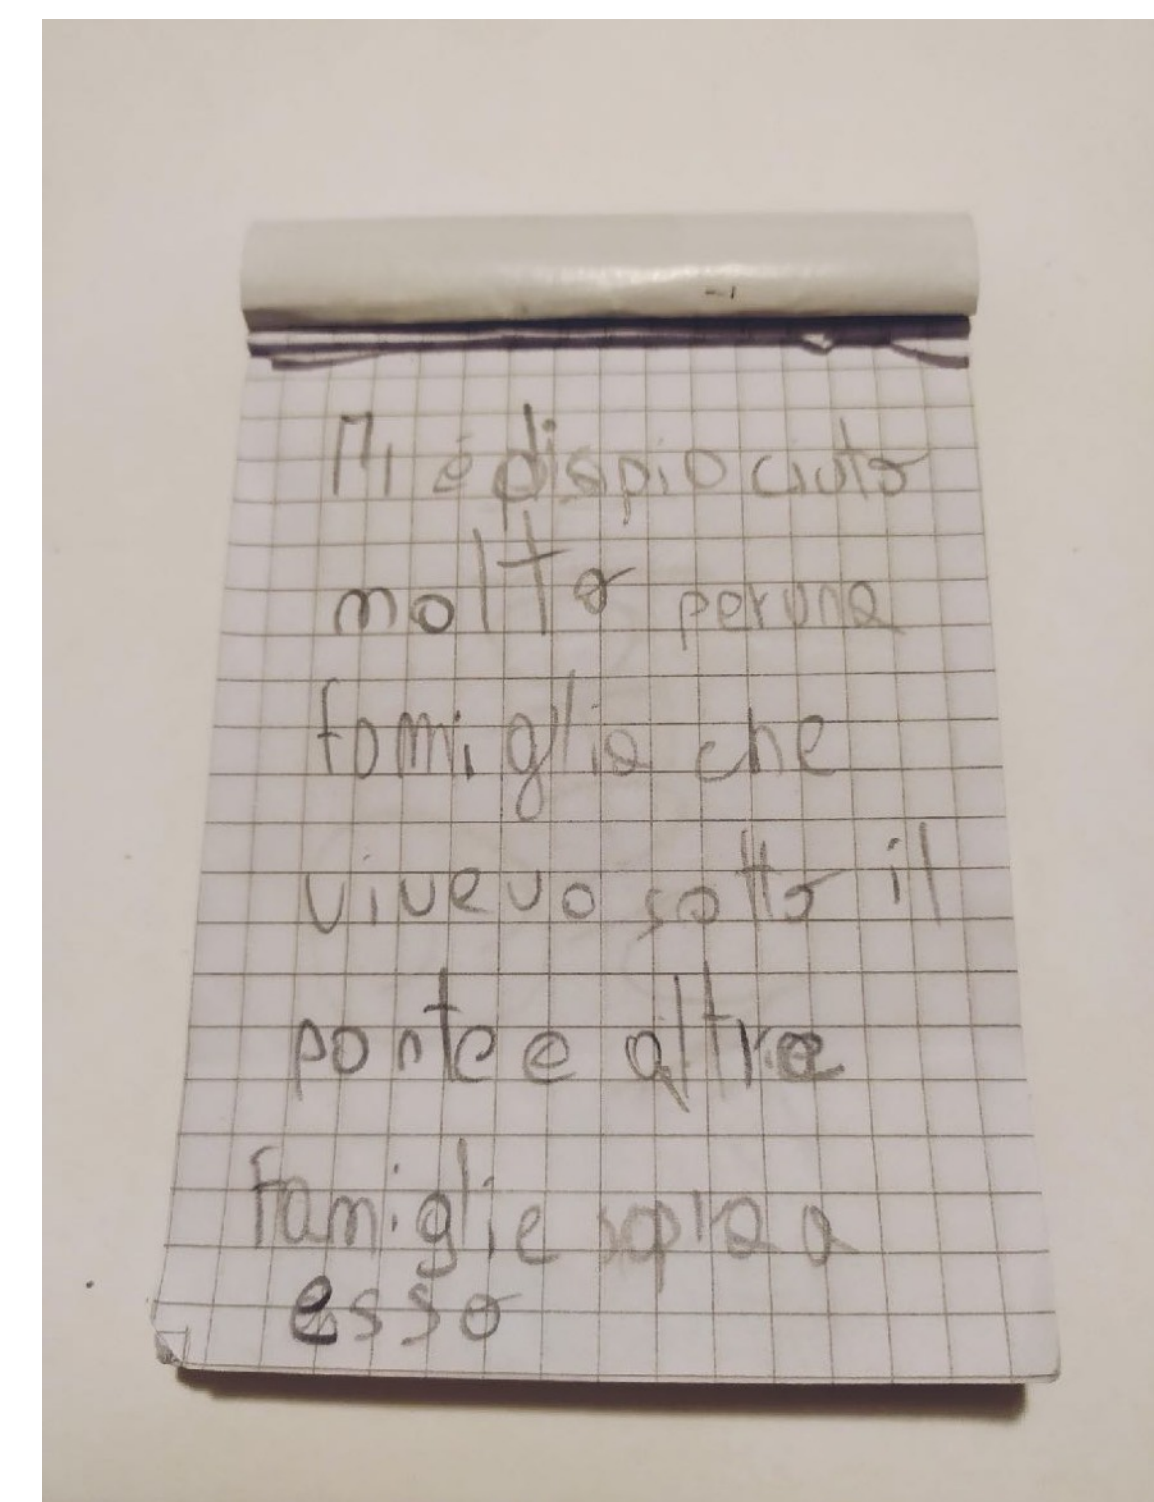 Mi é dispiaciuto
molto per una
famiglia che
viveva sotto il
ponte e altre
famiglie sopra a
esso